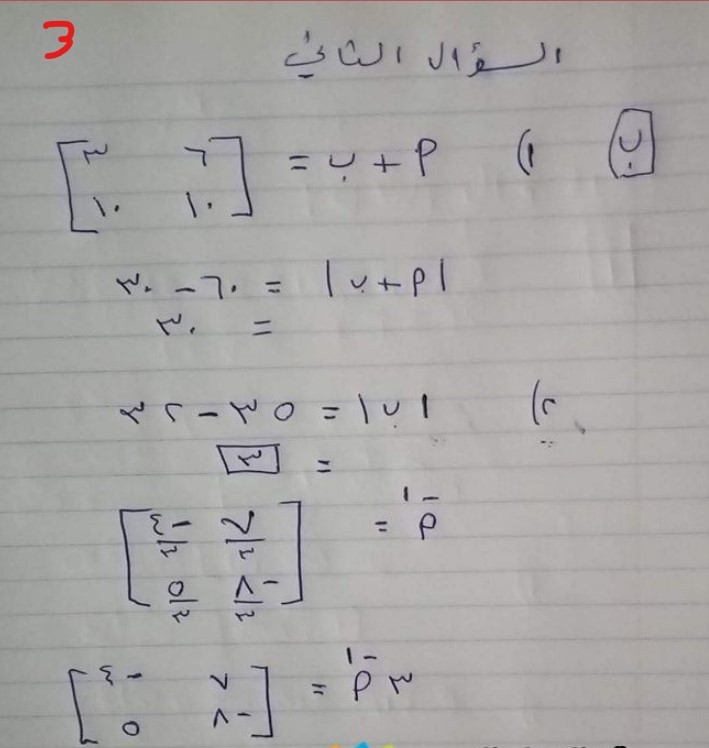 3
السؤال الثاني
ب ١) أ + ب = [٦ ٣
١٠ ١٠]
|أ + ب| = ٦٠ - ٣٠
= ٣٠
٢) |ب| = ٣٥ - ٣٢
= ٣
أ⁻¹ = [٧/٣ -٤/٣
-٨/٣ ٥/٣]
٣أ⁻¹ = [٧ -٤
-٨ ٥]